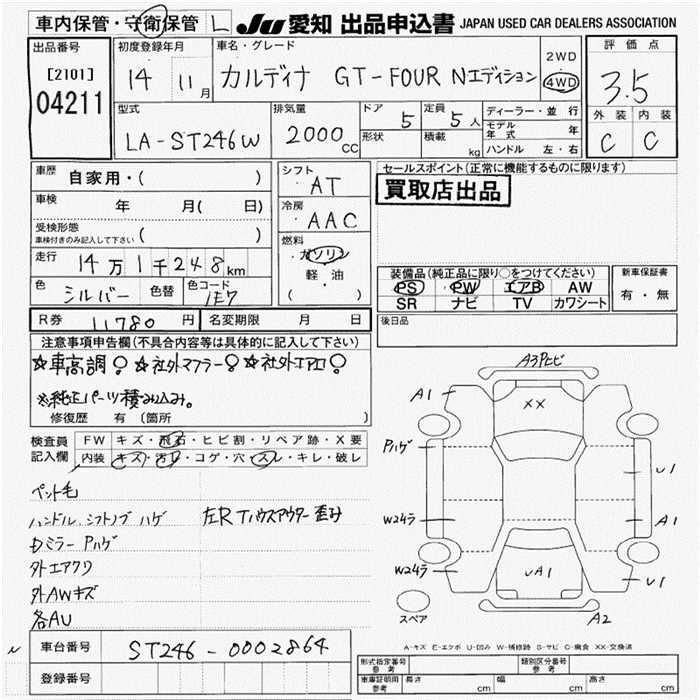 車内保管・守衛保管 L JU 愛知 出品申込書 JAPAN USED CAR DEALERS ASSOCIATION
出品番号 初度登録年月 車名・グレード 2WD 評価点
[2101] 14 11月 カルディナ GT-FOUR Nエディション 4WD 3.5
04211
型式 排気量 ドア 5 定員 5人 ディーラー・並行 外装 内装
LA-ST246W 2000cc 形状 積載 kg モデル年式 年 C C
ハンドル 左・右
車歴 自家用・( ) シフト AT セールスポイント(正常に機能するものに限ります)
車検 年 月( 日) 冷房 AAC 買取店出品
受検形態
車検付きのみ記入して下さい ( )
燃料 ガソリン
走行 14万1千248km 軽・油
( )
装備品(純正品に限り○をつけてください) 新車保証書
色 シルバー 色替 色コード 1E7
PS PW エアB AW 有・無
SR ナビ TV カワシート
R券 11780円 名変期限 月 日 後日品
注意事項申告欄(不具合内容等は具体的に記入して下さい)
☆車高調○ ☆社外マフラー○ ☆社外エアロ○
※純正パーツ積み込み。
修復歴 有 〔箇所 〕
検査員記入欄 FW キズ・飛石・ヒビ割・リペア跡・X要
内装 キズ・汚レ・コゲ・穴・スレ・キレ・破レ
ペット毛
ハンドル、シフトノブ ハゲ 左RTハウスアウター歪み
Dミラー Pハゲ
外エアクリ
外AWキズ
各AU
A3Pヒビ
A1 XX
Pハゲ U1
W24ラ A1
W24ラ UA1 U1
スペア A2
A-キズ E-エクボ U-凹み W-補修跡 S-サビ C-腐食 XX-交換済
車台番号 ST246-0002864
登録番号
形式指定番号 参考 類別区分番号 参考
車庫証明用 参考 長さ cm 幅 cm 高さ cm